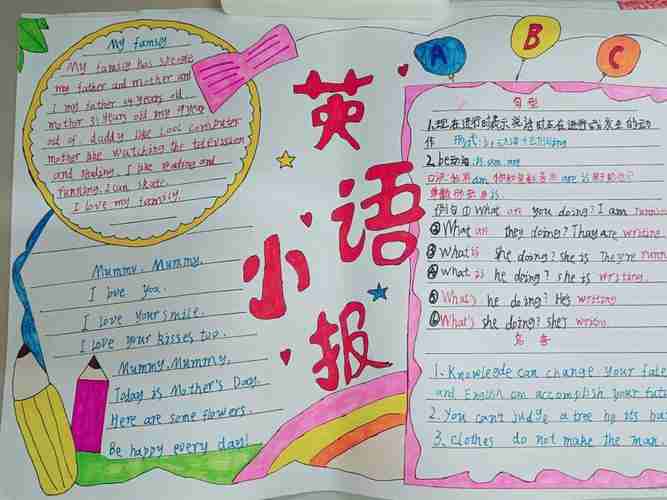 My famsly
My famsly has
my father and mother and
I my father years old
mother 31 years old my
out of daddy like computer
mother like watching the television
and I like reading and
running. I can skate
I love my famsly
Mummy, Mummy,
I love you.
I love your smile.
I love your kisses too.
Mummy, Mummy,
Today is Mother's Day.
Here are some flowers.
Be happy every day!
英语
小报
A B C
句型
1.现在进行时表示 正在进行或发生的动
作
2. be动词: is am are
例句 ① What are you doing? I am
② What are they doing? Thay are writing
③ What is she doing? she is They're
④ What is he doing? she is writing.
⑤ What's he doing? He's writing
⑥ What's she doing? she's writing
名言
1. Knowlegde can change your fate
and English am accomplish your
2. You can't judge a tree by its
3. clothes do not make the man.